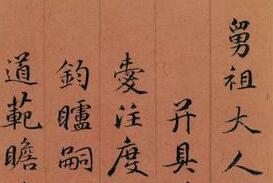 舅祖大人
并具
臺注度
鈞曥嗣
道範瞻